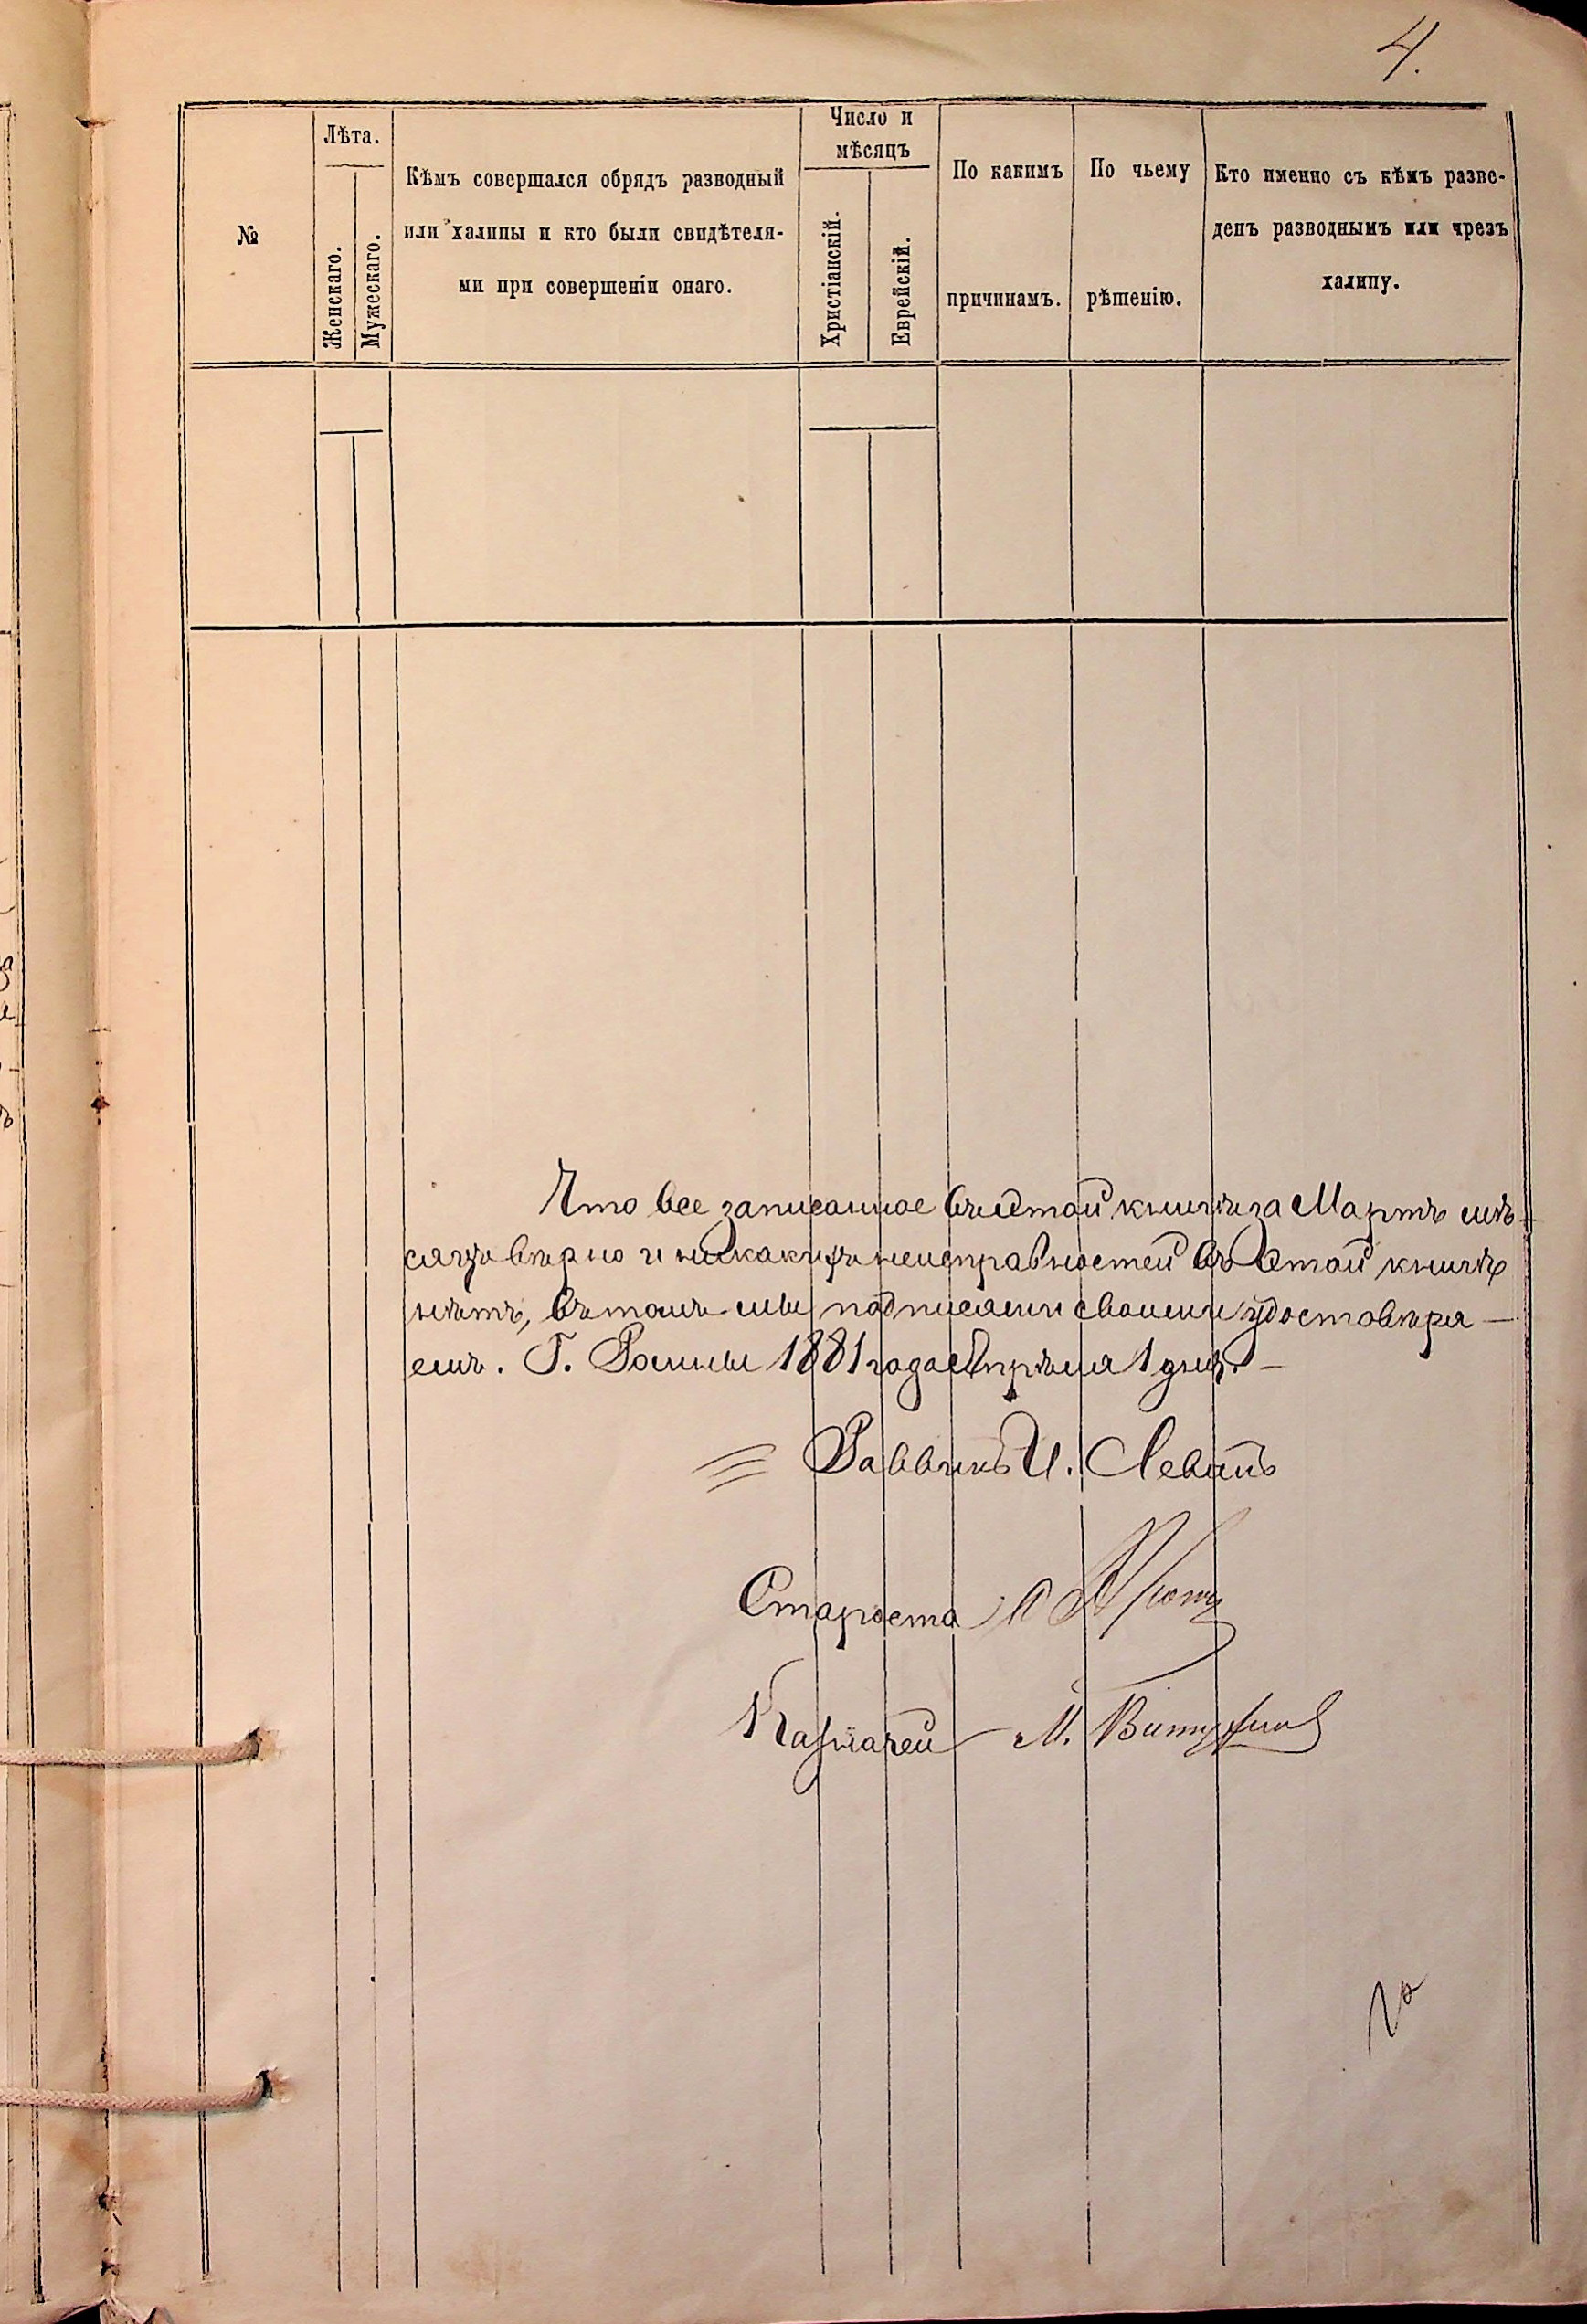 4.
№
Лѣта.
Женскаго.
Мужескаго.
Кѣмъ совершался обрядъ разводный
или халицы и кто были свидѣтеля-
ми при совершеніи онаго.
Число и
мѣсяцъ
Христіанскій.
Еврейскій.
По какимъ
причинамъ.
По чьему
рѣшенію.
Кто именно съ кѣмъ разве-
денъ разводнымъ или чрезъ
халицу.
Что все записанное въ етой книгѣ за Мартъ мѣ-
сяцъ вѣрно и никакихъ неисправностей въ етой книгѣ
нѣтъ, въ томъ мы подписями своими удостовѣря-
емъ. Г. Ромны 1881 года Апрѣля 1 дня. —
Раввинъ И. Левинъ
Староста
Казначей М.